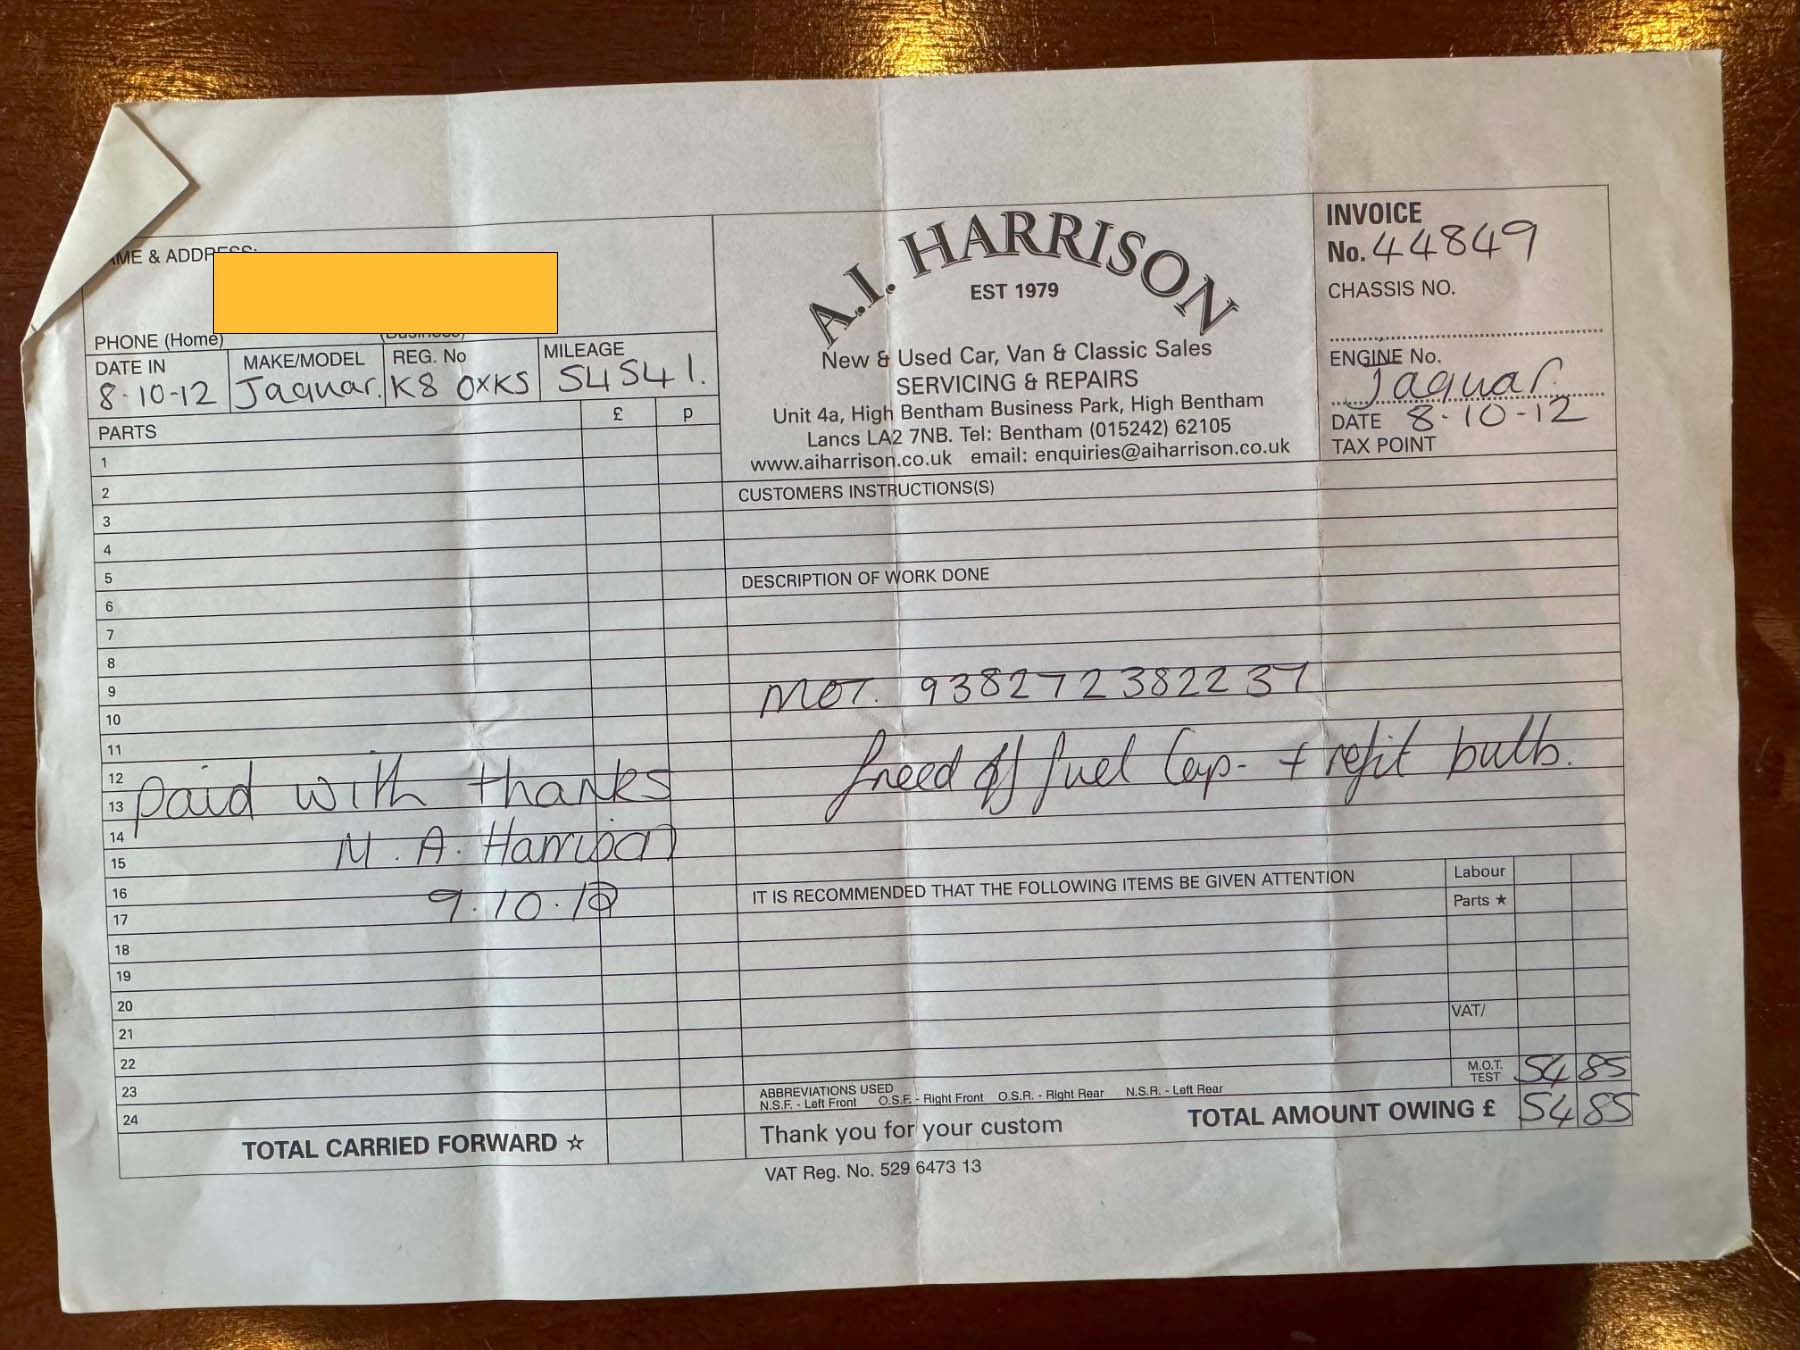 ME & ADDRESS:
PHONE (Home) (Business)
DATE IN MAKE/MODEL REG. No MILEAGE
8-10-12 Jaguar. K8 OXKS 54541.
PARTS £ p
1
2
3
4
5
6
7
8
9
10
11
12
13
14
15
16
17
18
19
20
21
22
23
24
paid with thanks
M. A. Harrison
9.10.12
TOTAL CARRIED FORWARD ☆
A.I. HARRISON
EST 1979
New & Used Car, Van & Classic Sales
SERVICING & REPAIRS
Unit 4a, High Bentham Business Park, High Bentham
Lancs LA2 7NB. Tel: Bentham (015242) 62105
www.aiharrison.co.uk email: enquiries@aiharrison.co.uk
INVOICE
No. 44849
CHASSIS NO.
ENGINE No.
Jaguar.
DATE 8-10-12
TAX POINT
CUSTOMERS INSTRUCTIONS(S)
DESCRIPTION OF WORK DONE
MOT. 938272382237
freed off fuel Cap- + refit bulb.
IT IS RECOMMENDED THAT THE FOLLOWING ITEMS BE GIVEN ATTENTION
Labour
Parts ★
VAT/
M.O.T. TEST 54 85
ABBREVIATIONS USED
N.S.F. - Left Front O.S.F. - Right Front O.S.R. - Right Rear N.S.R. - Left Rear
Thank you for your custom
TOTAL AMOUNT OWING £ 54 85
VAT Reg. No. 529 6473 13